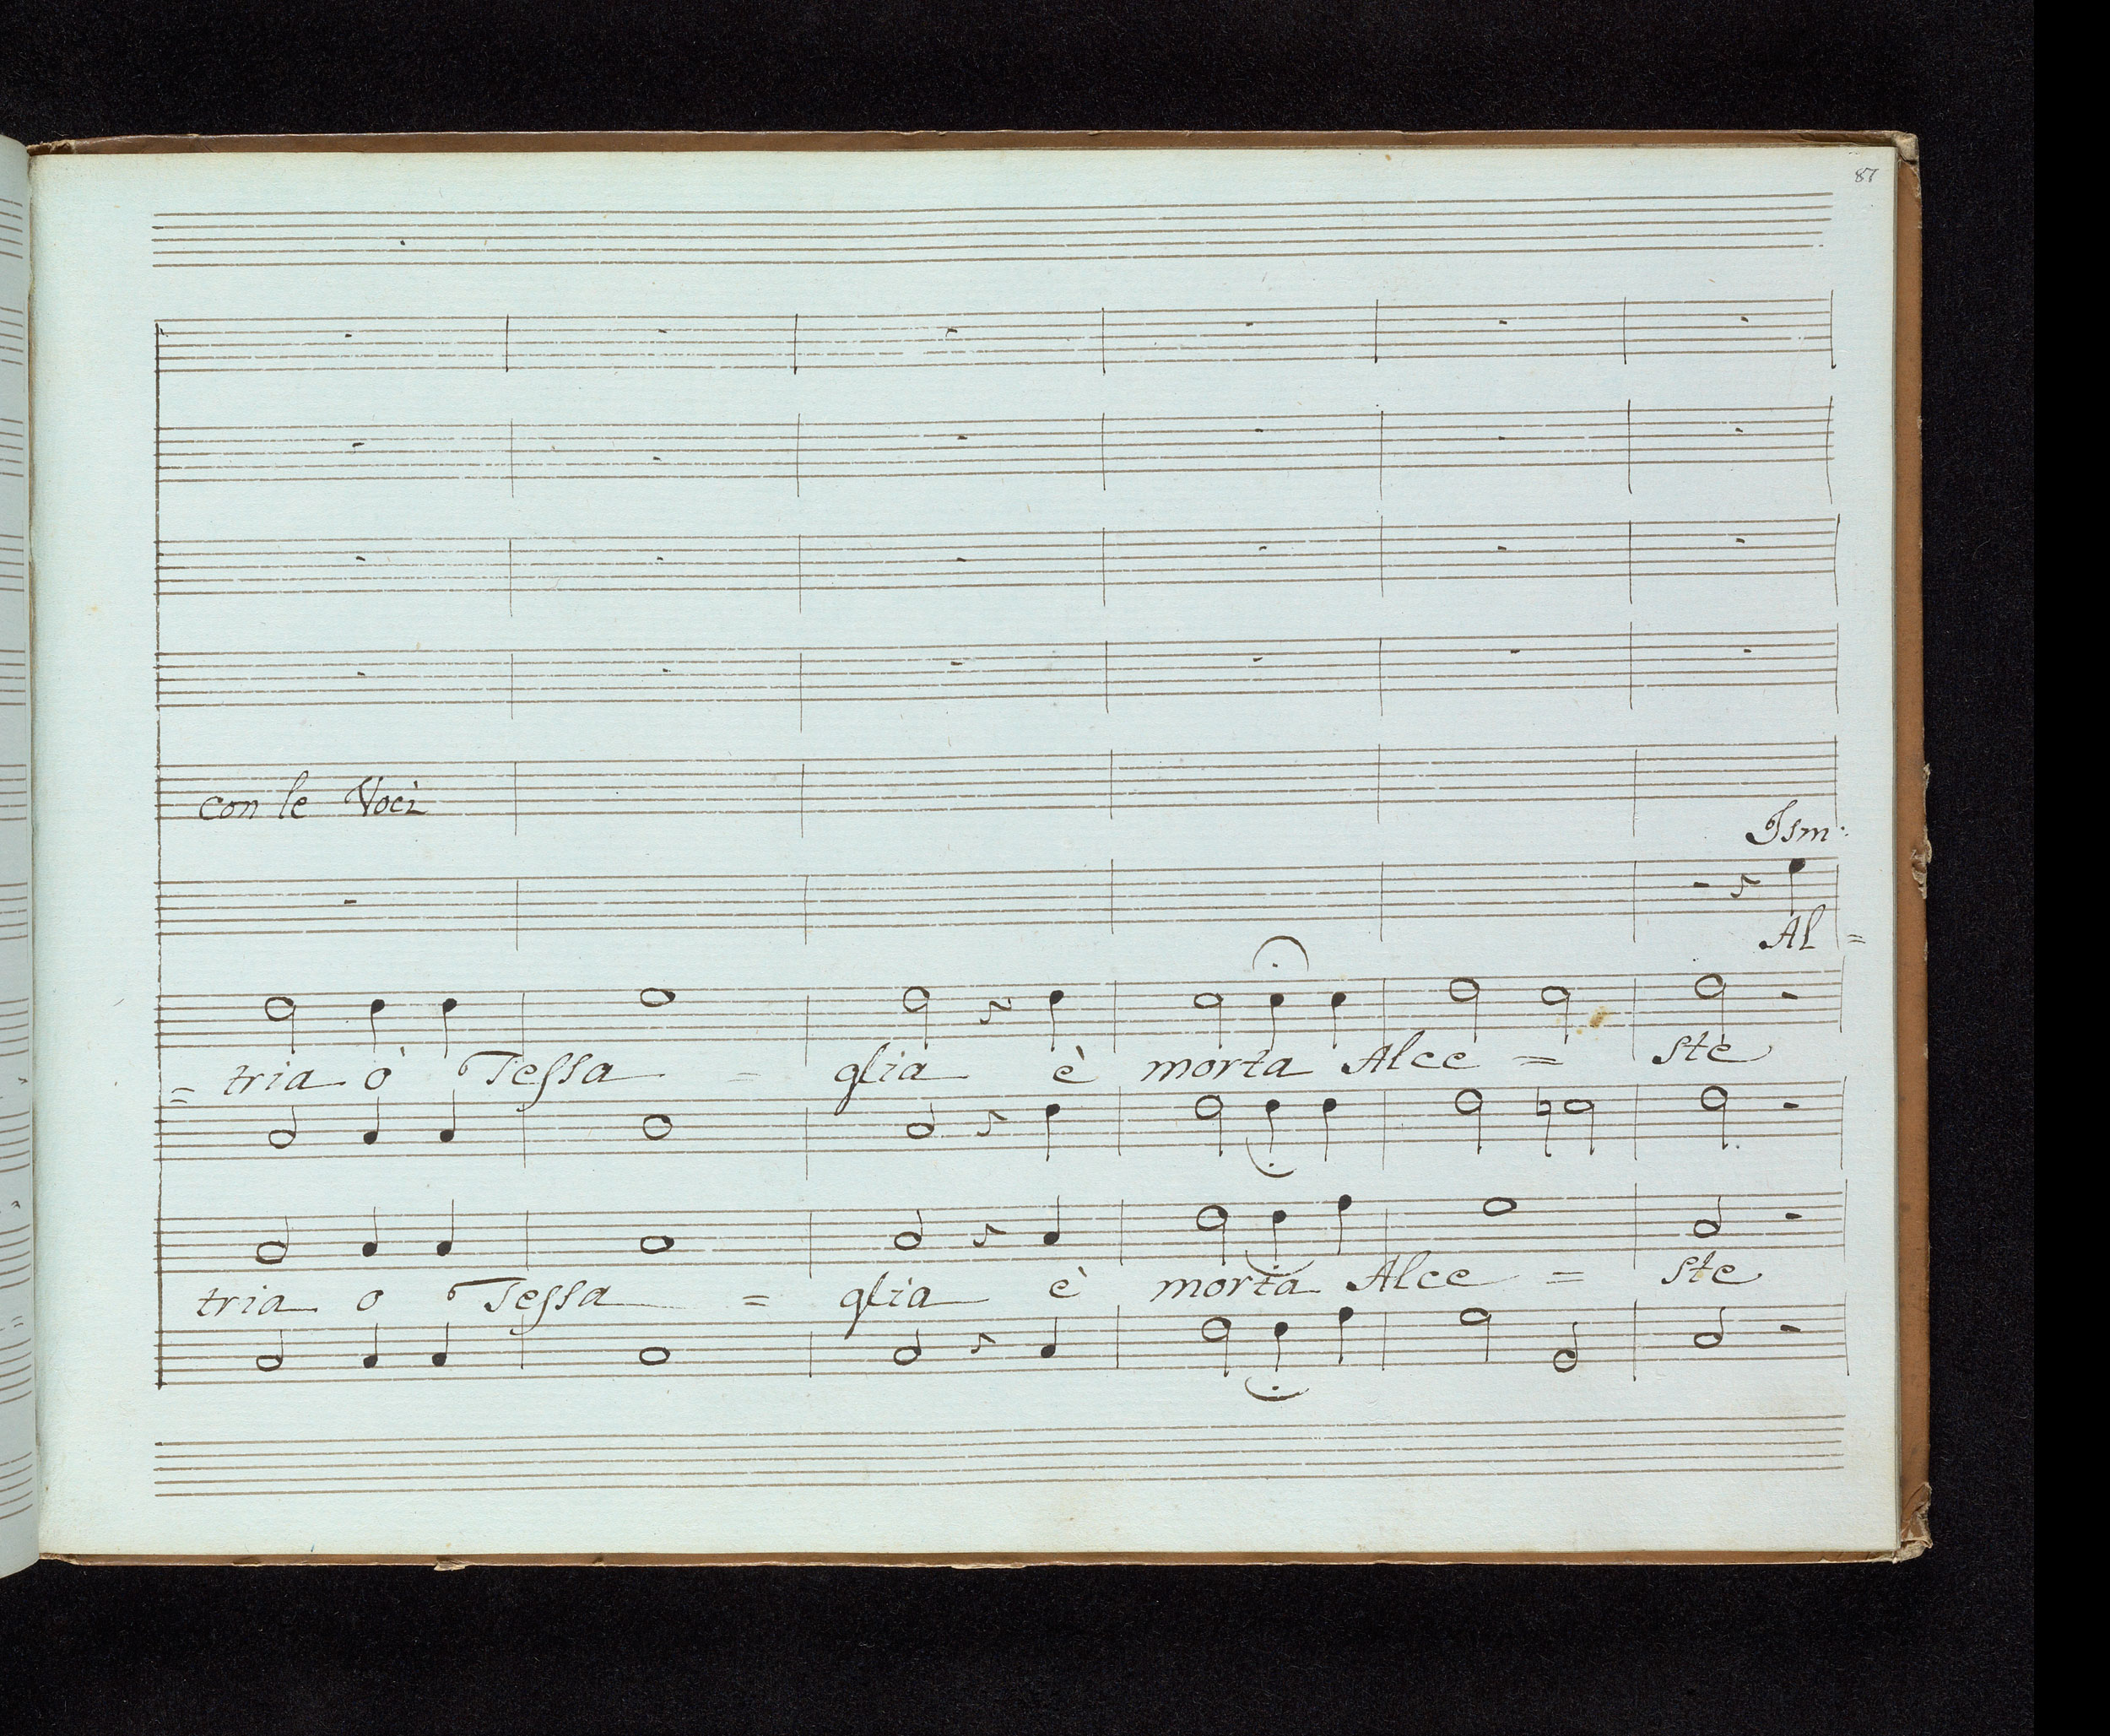 87
con le Voci
Ism:
Al =
= tria ò Tessa = glia è morta Alce = ste
tria o Tessa = glia è morta Alce = ste